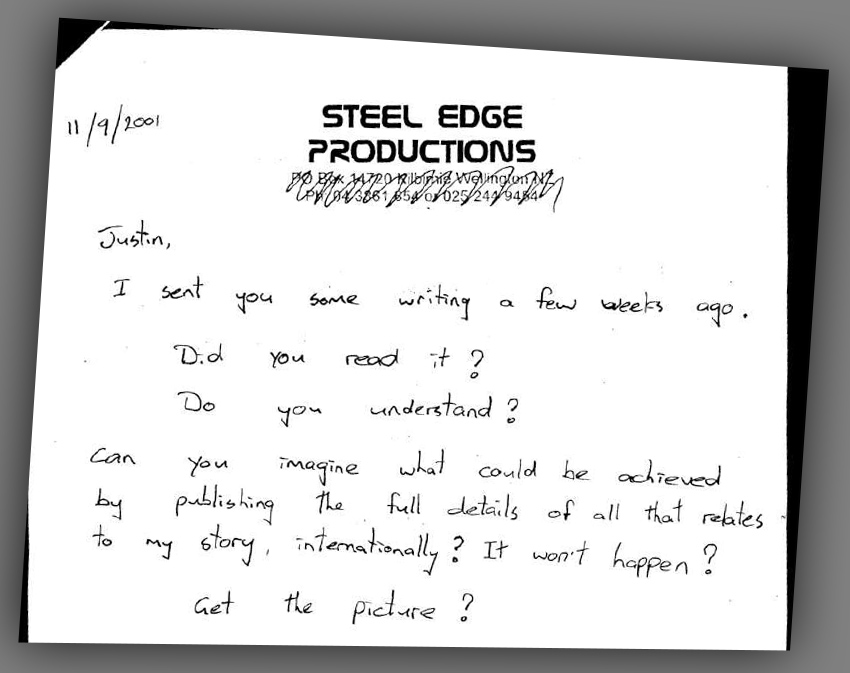 11/9/2001
STEEL EDGE
PRODUCTIONS
PO Box 14720 Kilbirnie Wellington NZ
Ph 04 3861 654 or 025 244 9454
Justin,
I sent you some writing a few weeks ago.
Did you read it?
Do you understand?
Can you imagine what could be achieved
by publishing the full details of all that relates
to my story, internationally? It won't happen?
Get the picture?